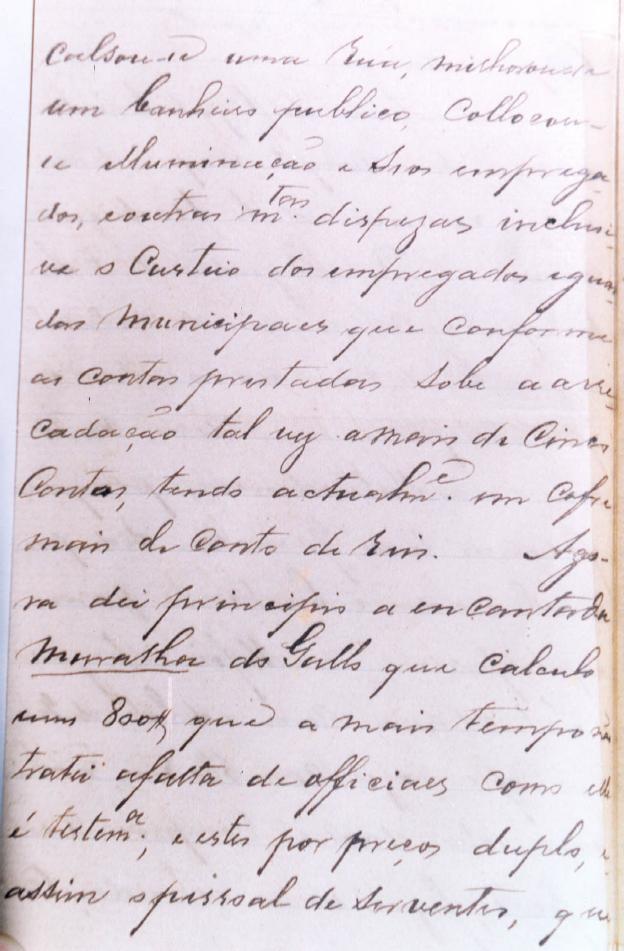 calsou-se uma Rua, milhorou-se
um banheiro publico, Collocou-
se elluminação e seos emprega-
dos, e outras m.tas dispezas inclusi-
ve o Custeio dos empregados e guar-
das Municipaes que Conforme
as contas prestadas sobe a arre-
cadação tal vez a mais de Cinco
Contos, tendo actualm.e em Cofre
mais de Conto de Reis. Ago-
ra dei principio a encontordu
Muralha do Gallo que Calculo
uns 800$ que a mais tempo não
tratei a falta de officiaes como elle
é testem.a; e estes por preços duplo, e
assim o pissoal de serventes, que